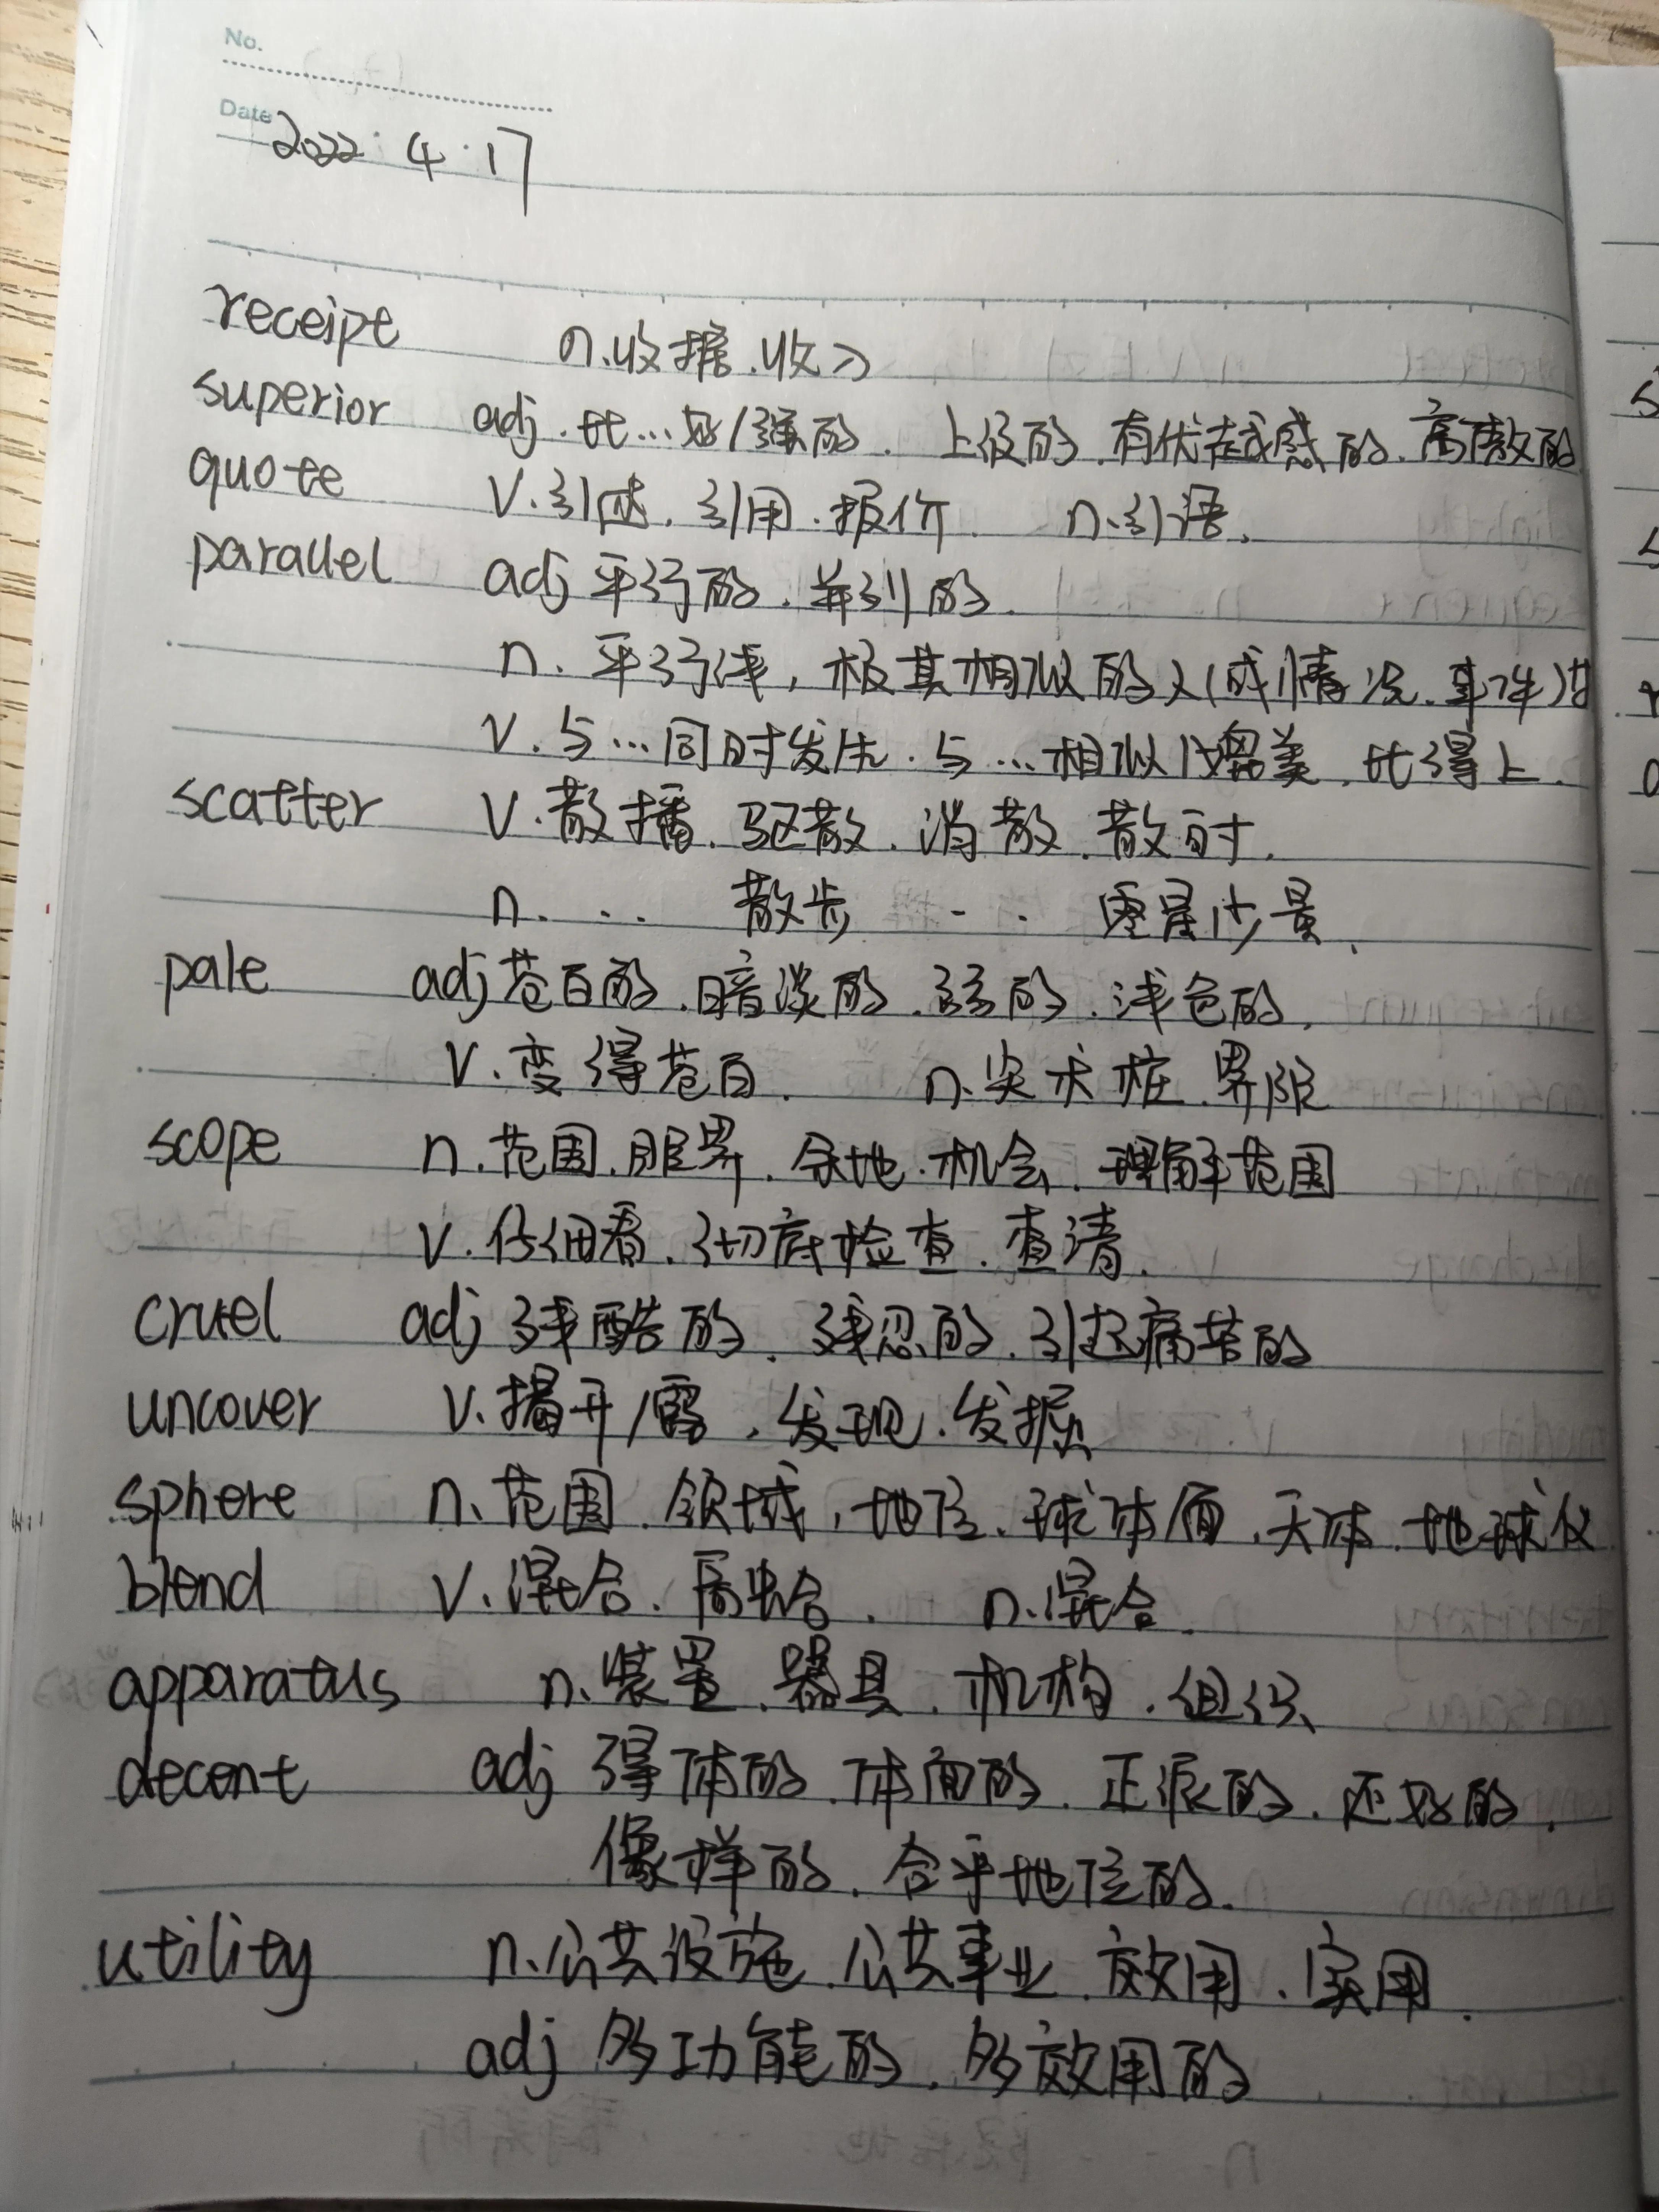 No.
Date 2022.4.17
receipt n.收据.收入
superior adj.比…好/强的.上级的.有优越感的.高傲的
quote v.引述.引用.报价. n.引语.
parallel adj平行的.并列的.
n.平行线,极其相似的人(或情况.事件)等
v.与…同时发生.与…相似/媲美.比得上.
scatter v.散播.驱散.消散.散射.
n. .. 散步 .. 零星少量.
pale adj苍白的.暗淡的.弱的.浅色的.
v.变得苍白. n.尖木桩.界限
scope n.范围.眼界.余地.机会.理解范围
v.仔细看.彻底检查.查清.
cruel adj残酷的.残忍的.引起痛苦的
uncover v.揭开/露,发现.发掘
sphere n.范围.领域,地位.球体/面.天体.地球仪
blend v.混合.融合. n.混合.
apparatus n.装置.器具.机构.组织
decent adj得体的.体面的.正派的.还好的.
像样的.合乎地位的.
utility n.公共设施.公共事业.效用.实用.
adj多功能的.多效用的